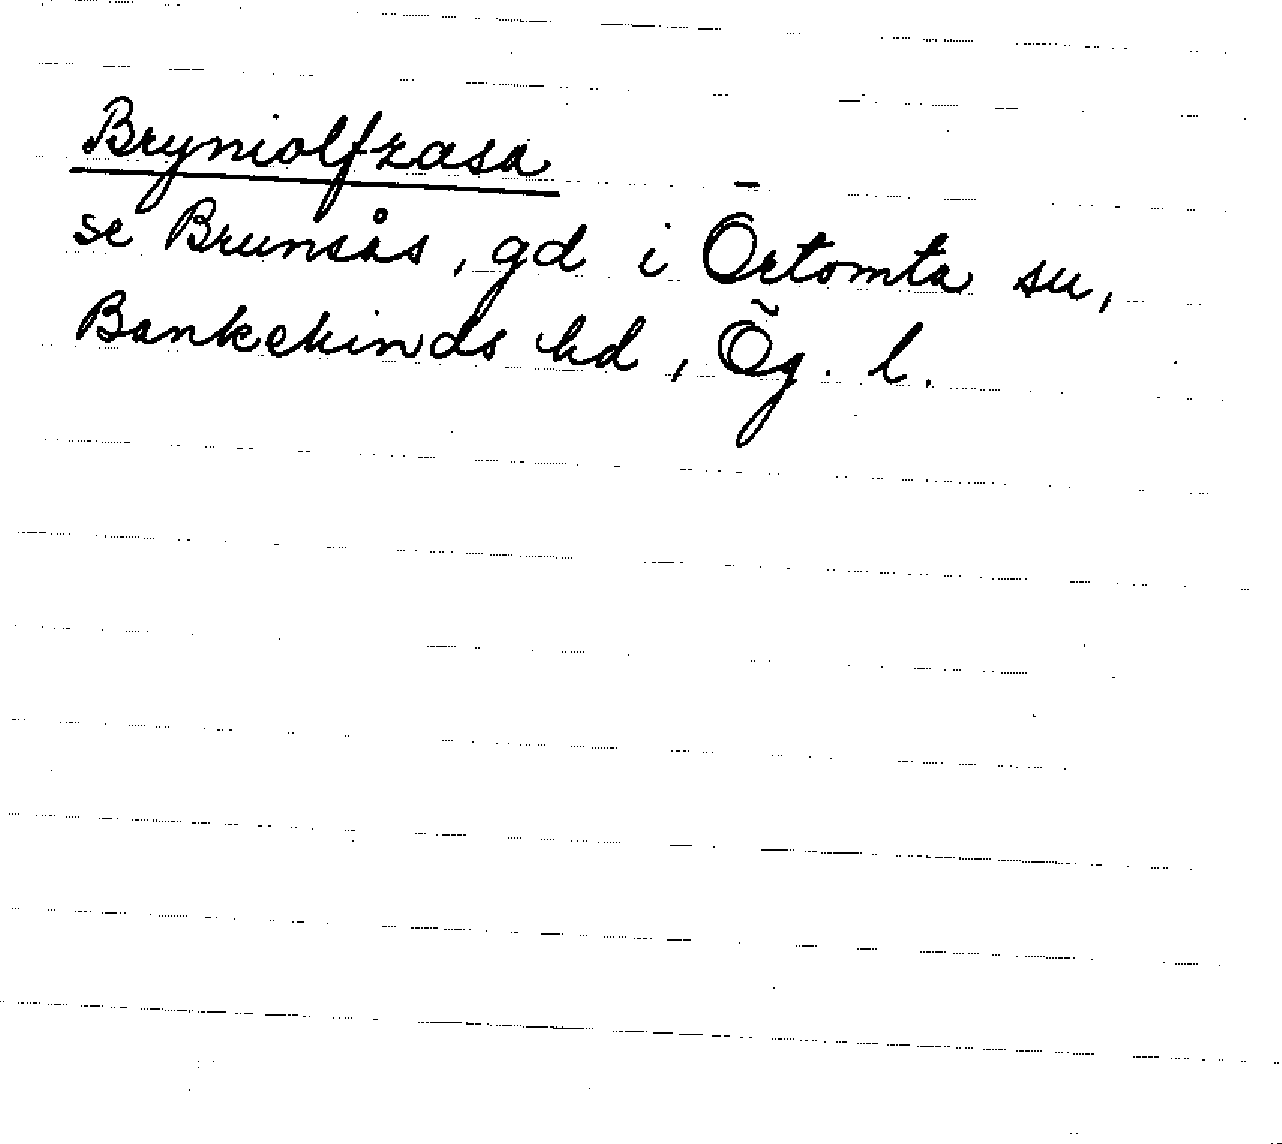 Bryniolfzasa
se Brunsås, gd i Örtomta sn,
Bankekinds hd, Ög. l.